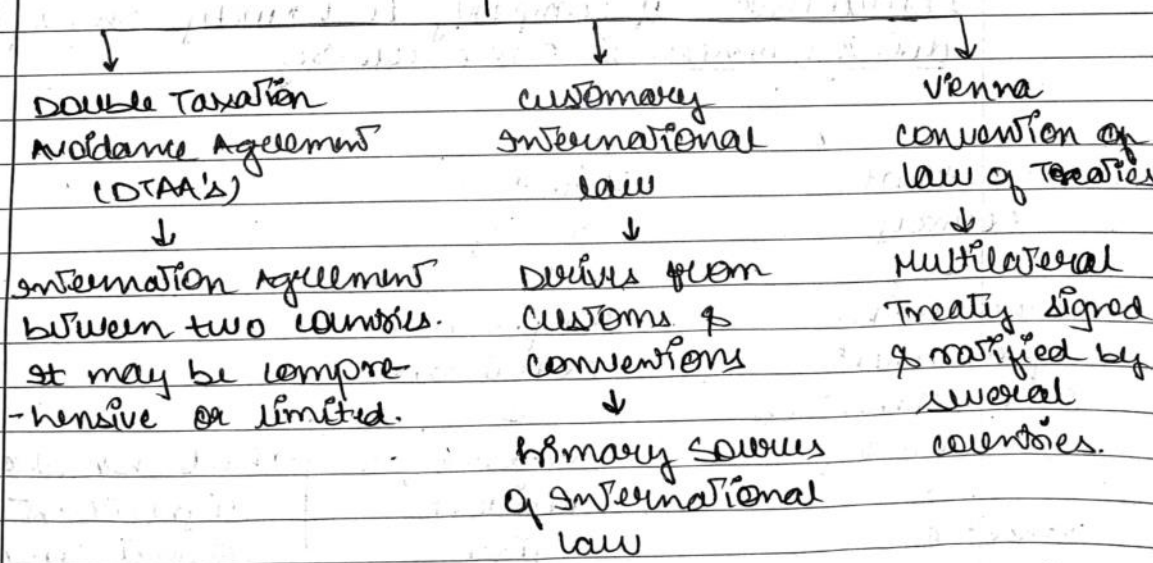 Double Taxation
Avoidance Agreement
(DTAA's)
Internation Agreement
between two countries.
It may be compre-
-hensive or limited.
Customary
International
law
Derives from
customs &
conventions
Primary Sources
of International
law
Vienna
convention on
law of Treaties
Multilateral
Treaty signed
& ratified by
several
countries.